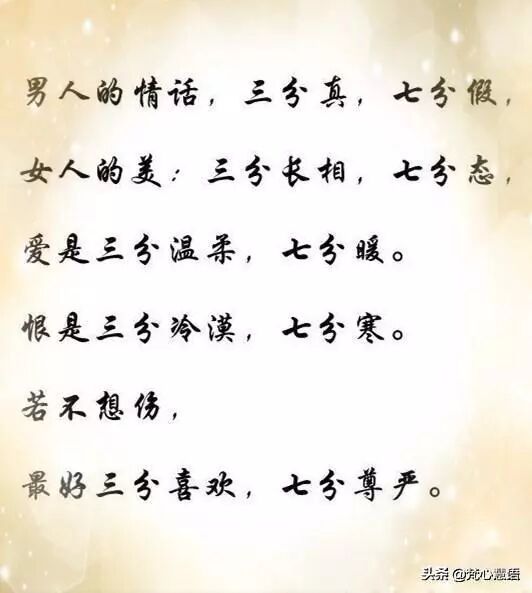 男人的情话，三分真，七分假，
女人的美：三分长相，七分态，
爱是三分温柔，七分暖。
恨是三分冷漠，七分寒。
若不想伤，
最好三分喜欢，七分尊严。
头条 @梵心慧语